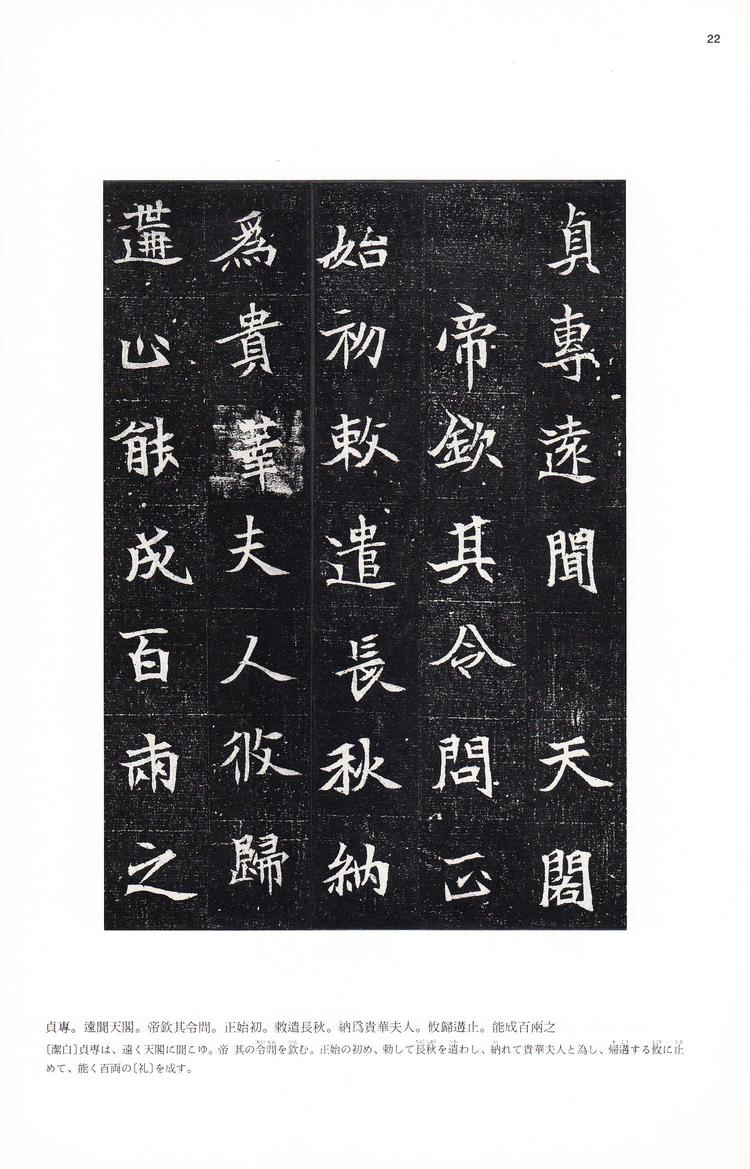 22
貞專遠聞 天閣
帝欽其令問正
始初敕遣長秋納
爲貴華夫人攸歸
遘止能成百兩之
貞専。遠聞天閣。帝欽其令問。正始初。敕遣長秋。納爲貴華夫人。攸歸遘止。能成百兩之
〔潔白〕貞専は、遠く天閣に聞こゆ。帝 其の令問を欽む。正始の初め、勅して長秋を遣わし、納れて貴華夫人と為し、帰遘する攸に止
めて、能く百両の〔礼〕を成す。